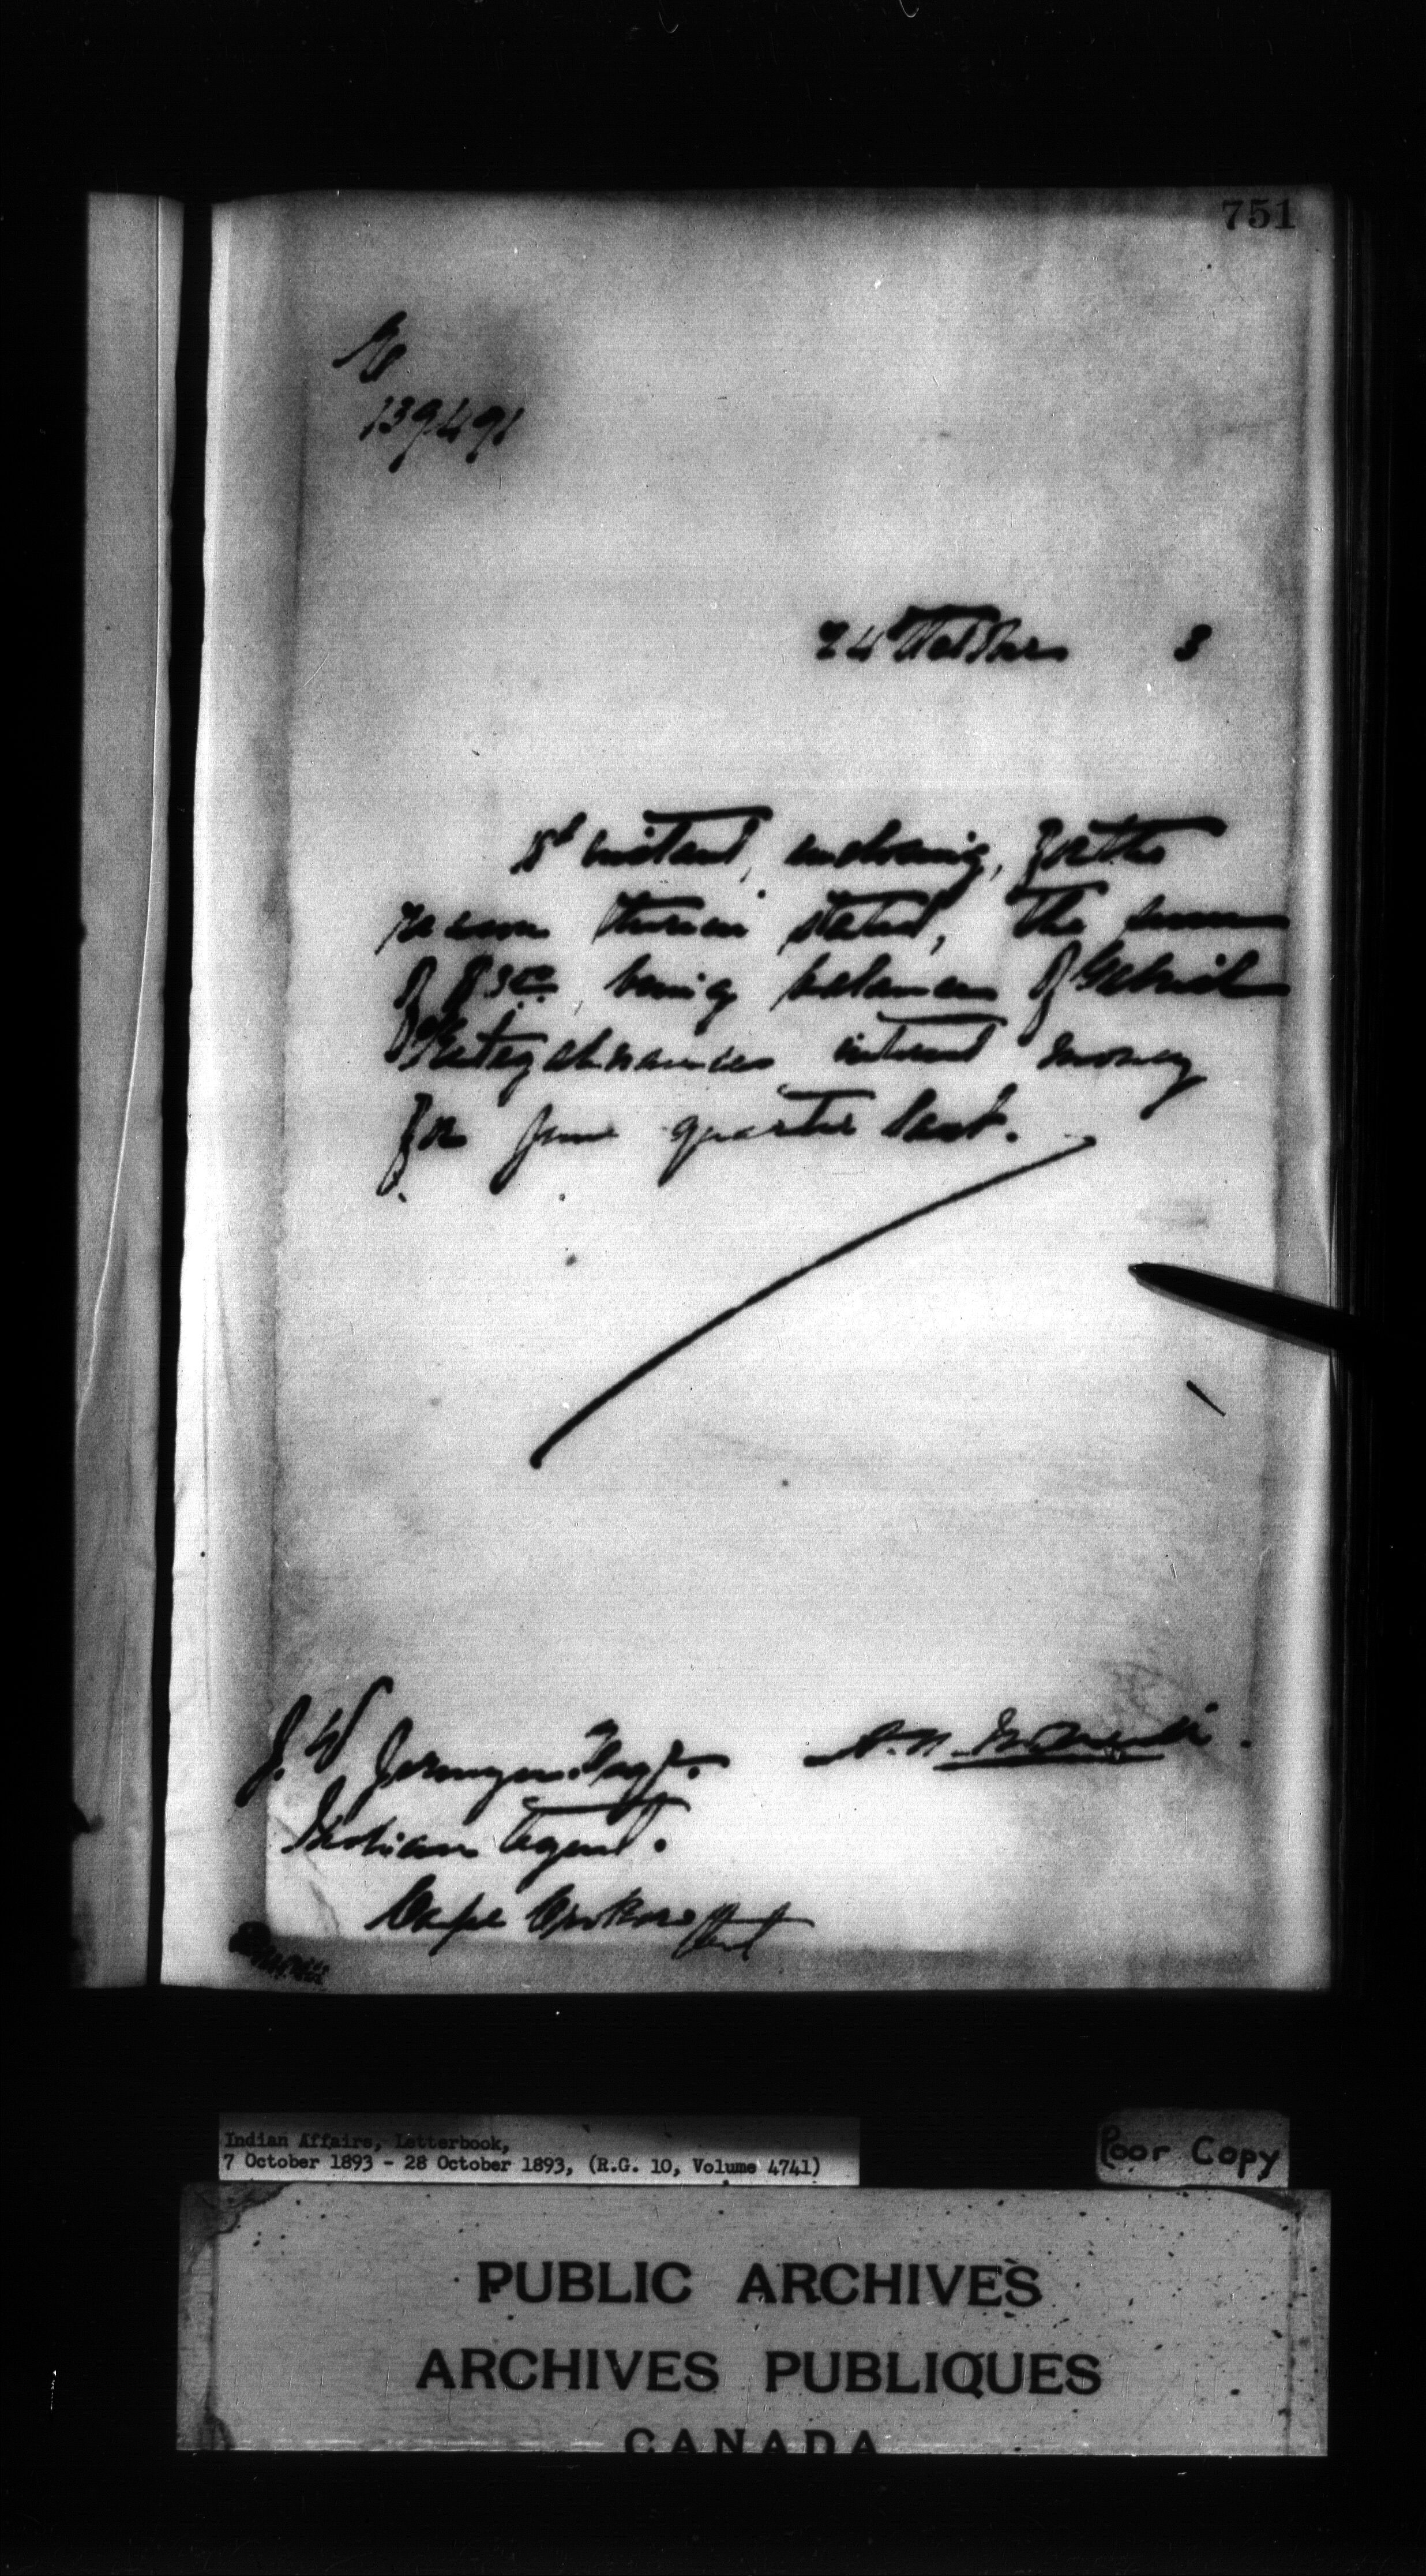 751
139491
24 October 3
instant, enclosing, for the
reason therein stated, the sum
of $3.00 being balance of Gabriel
interest money
for June quarter last.
J. W. Jermyn Esqr.
Indian Agent.
Cape Croker Ont
Indian Affairs, Letterbook,
7 October 1893 - 28 October 1893, (R.G. 10, Volume 4741)
Poor Copy
PUBLIC ARCHIVES
ARCHIVES PUBLIQUES
CANADA